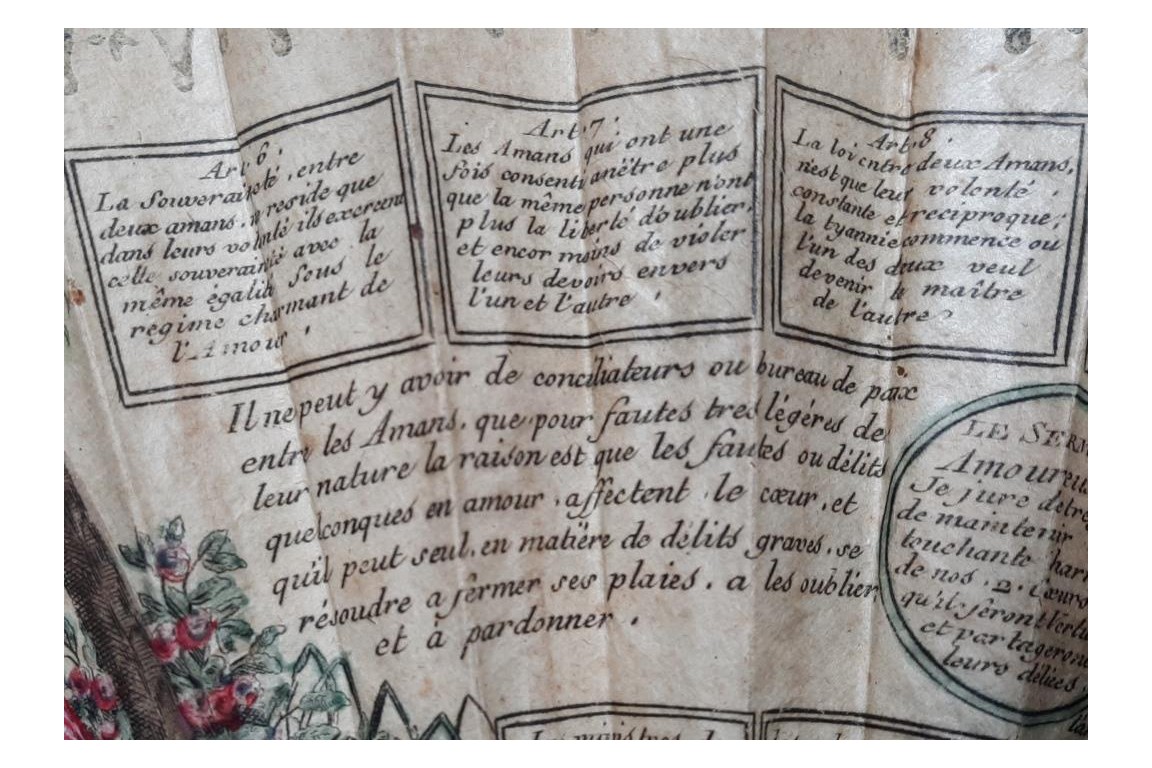 Art. 6.
La Souveraineté, entre
deux amans. ne reside que
dans leurs volonté ils exercent
cette souveraineté avec la
même égalité sous le
regime charmant de
l'Amour.
Art. 7.
Les Amans qui ont une
fois consenti anëtre plus
que la même personne n'ont
plus la liberté d'oublier,
et encor moins de violer
leurs devoirs envers
l'un et l'autre.
Art. 8.
La loi entre deux Amans,
n'est que leur volonté,
constante et reciproque;
la tyannie commence ou
l'un des deux veul
devenir le maître
de l'autre.
Il ne peut y avoir de conciliateurs ou bureau de paix
entre les Amans, que pour fautes tres légéres de
leur nature la raison est que les fautes ou délits
quelconques en amour, affectent, le cœur, et
qu'il peut seul, en matiëre de délits graves, se
résoudre a fermer ses plaies. a les oublier
et à pardonner.
LE SERM
Amoureux
Je jure detre
de maintenir
touchante har
de nos. 2. Cœurs
qu'il feront
et partageron
leurs délices.